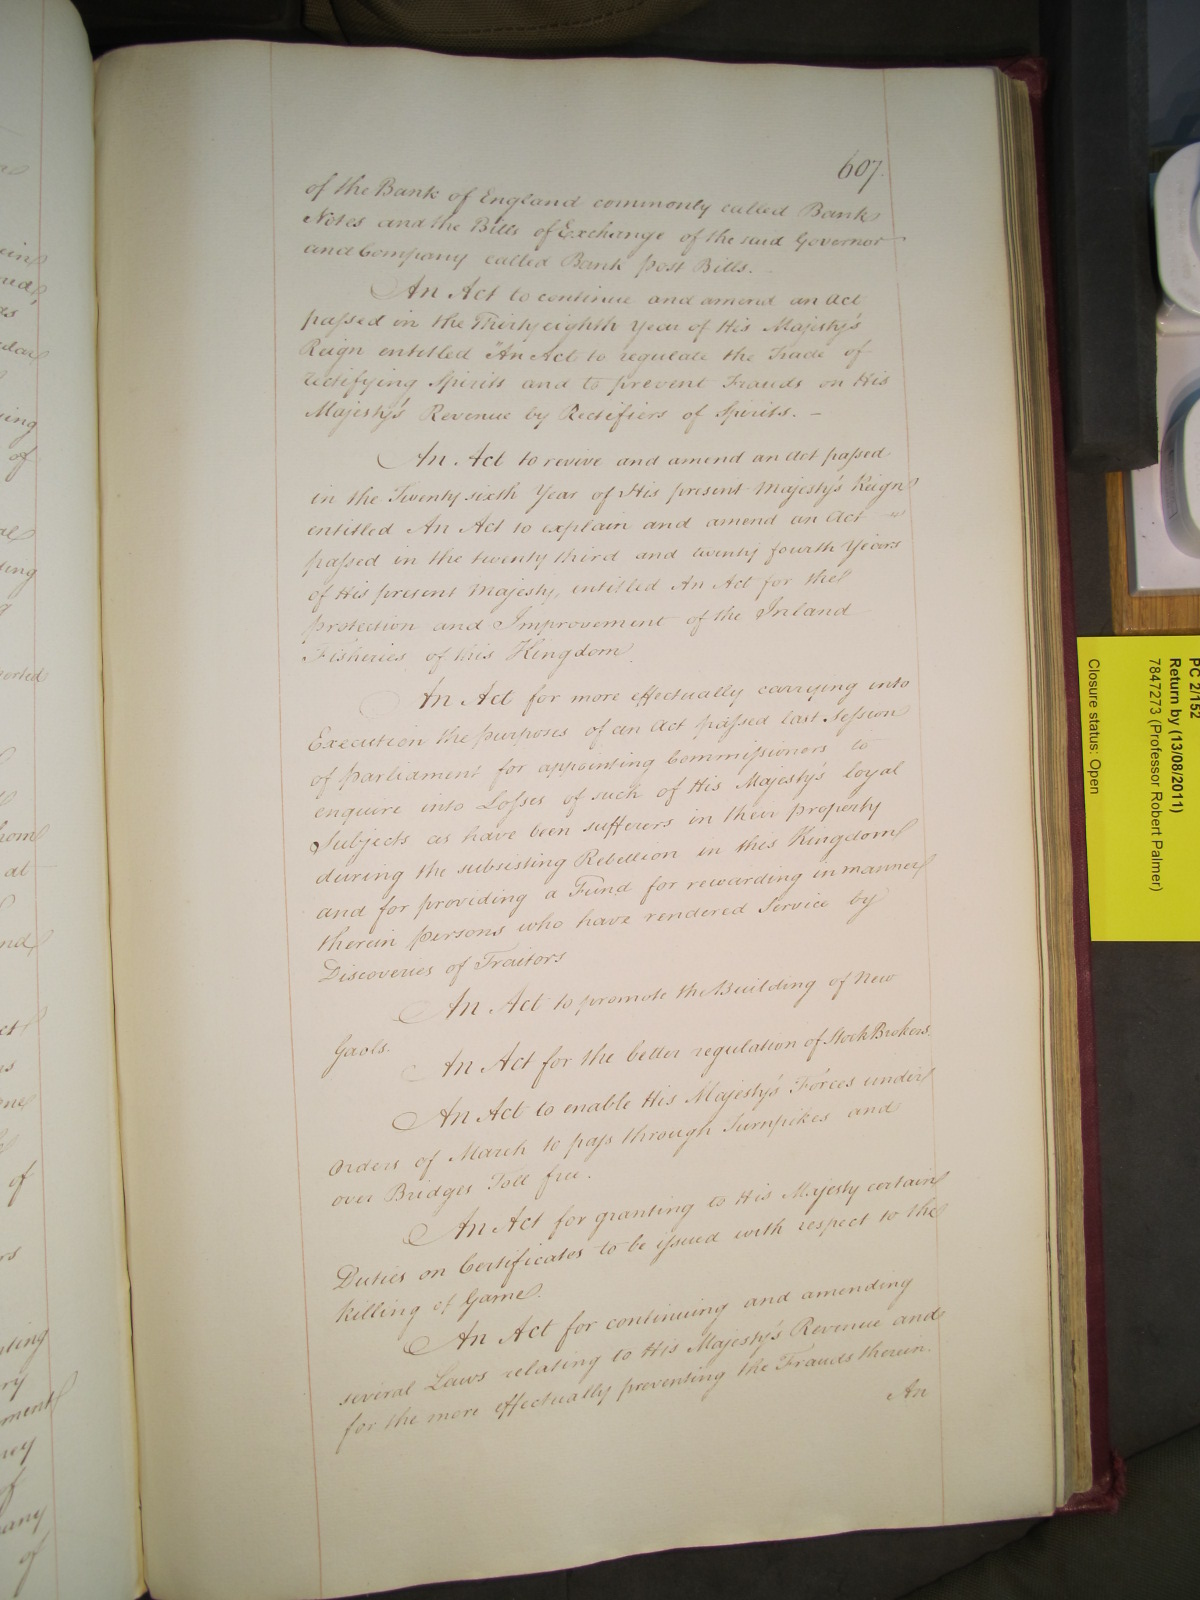 607.
of the Bank of England commonly called Bank
Notes and the Bills of Exchange of the said Governor
and Company called Bank post Bills.
An Act to continue and amend an Act
passed in the Thirty eighth Year of His Majesty's
Reign entitled "An Act to regulate the Trade of
rectifying Spirits and to prevent Frauds on His
Majesty's Revenue by Rectifiers of Spirits. –
An Act to revive and amend an Act passed
in the Twenty sixth Year of His present Majesty's Reign
entitled An Act to explain and amend an Act
passed in the twenty third and twenty fourth Years
of His present Majesty, entitled An Act for the
protection and Improvement of the Inland
Fisheries of this Kingdom
An Act for more effectually carrying into
Execution the purposes of an Act passed last Session
of parliament for appointing Commissioners to
enquire into Losses of such of His Majesty's loyal
Subjects as have been sufferers in their property
during the subsisting Rebellion in this Kingdom
and for providing a Fund for rewarding in manner
therein persons who have rendered Service by
Discoveries of Traitors
An Act to promote the Building of New
Gaols.
An Act for the better regulation of Stock Brokers.
An Act to enable His Majesty's Forces under
Orders of March to pass through Turnpikes and
over Bridges Toll free.
An Act for granting to His Majesty certain
Duties on Certificates to be issued with respect to the
killing of Game.
An Act for continuing and amending
several Laws relating to His Majesty's Revenue and
for the more effectually preventing the Frauds therein.
An
PC 2/152
Return by (13/08/2011)
7847273 (Professor Robert Palmer)
Closure status: Open